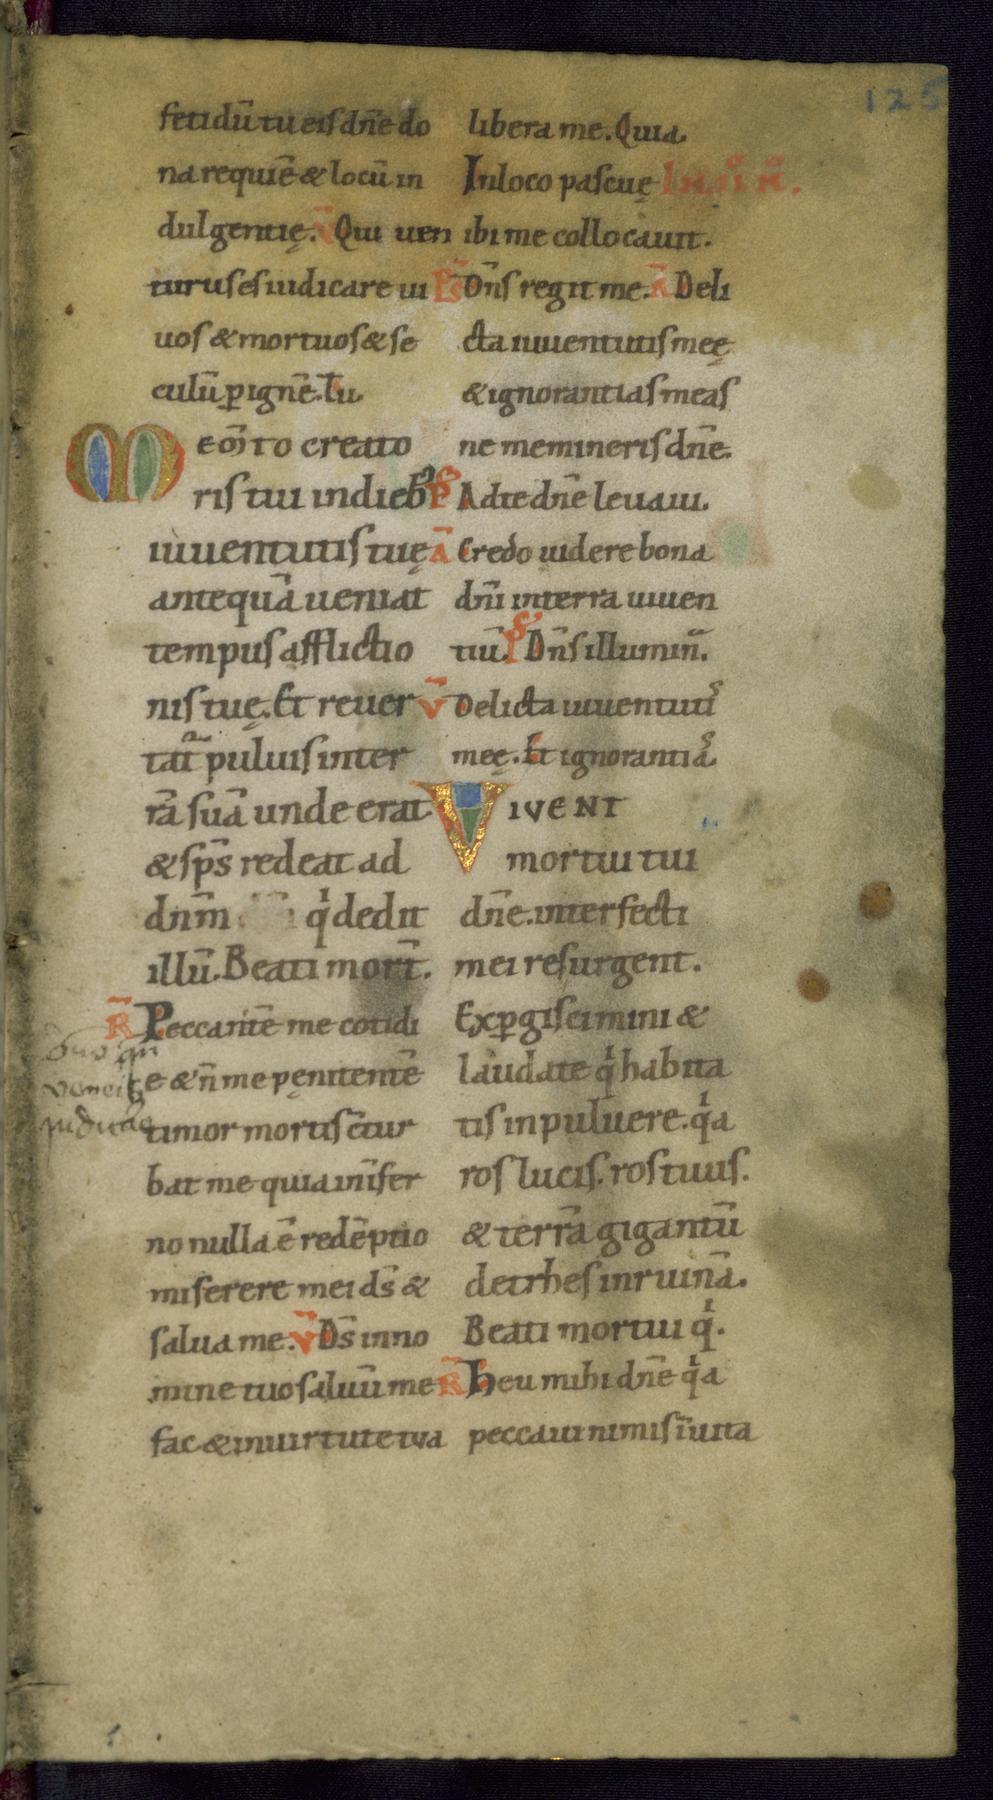 125
fetidū tu eis dn̄e do
na requiē & locū in
dulgentię. V̄ Qui uen
turus es iudicare ui
uos & mortuos & se
culū ꝑ ignē. Tu
Mem̄to creato
ris tui in dieb᷒
iuuentutis tuę
antequā ueniat
tempus afflictio
nis tuę. Et reuer
tat᷑ puluis inter
rā suā unde erat
& sp̄s redeat ad
dn̄m qͥ dedit
illū. Beati mort̄.
R̄ Peccantē me cotidi
e & n̄ me pęnitentē
timor mortis c̄tur
bat me quia in īfer
no nulla ē redēptio
miserere mei ds̄ &
salua me. V̄ Ds̄ in no
mine tuo saluū me
fac & in uirtute tua
libera me. Quia
In loco pascuę In .II. N̊.
ibi me collocauit.
Ps̄ Dn̄s regit me. Ā Deli
cta iuuentutis meę
& ignorantias meas
ne memineris dn̄e.
P̄s Ad te dn̄e leuaui.
Ā Credo uidere bona
dn̄i in terra uiuen
tiū. Ps Dn̄s illumin̄.
V̄ Delicta iuuentutiˢ
meę. Et ignorantiāˢ
VIVENT
mortui tui
dn̄e. interfecti
mei resurgent.
Exꝑgiscimini &
laudate qͥ habita
tis in puluere. qͥa
ros lucis. ros tuus.
& terrā gigantū
detrhes in ruinā.
Beati mortui qͥ.
R̄ Heu mihi dn̄e qͥa
peccaui nimis ī uita